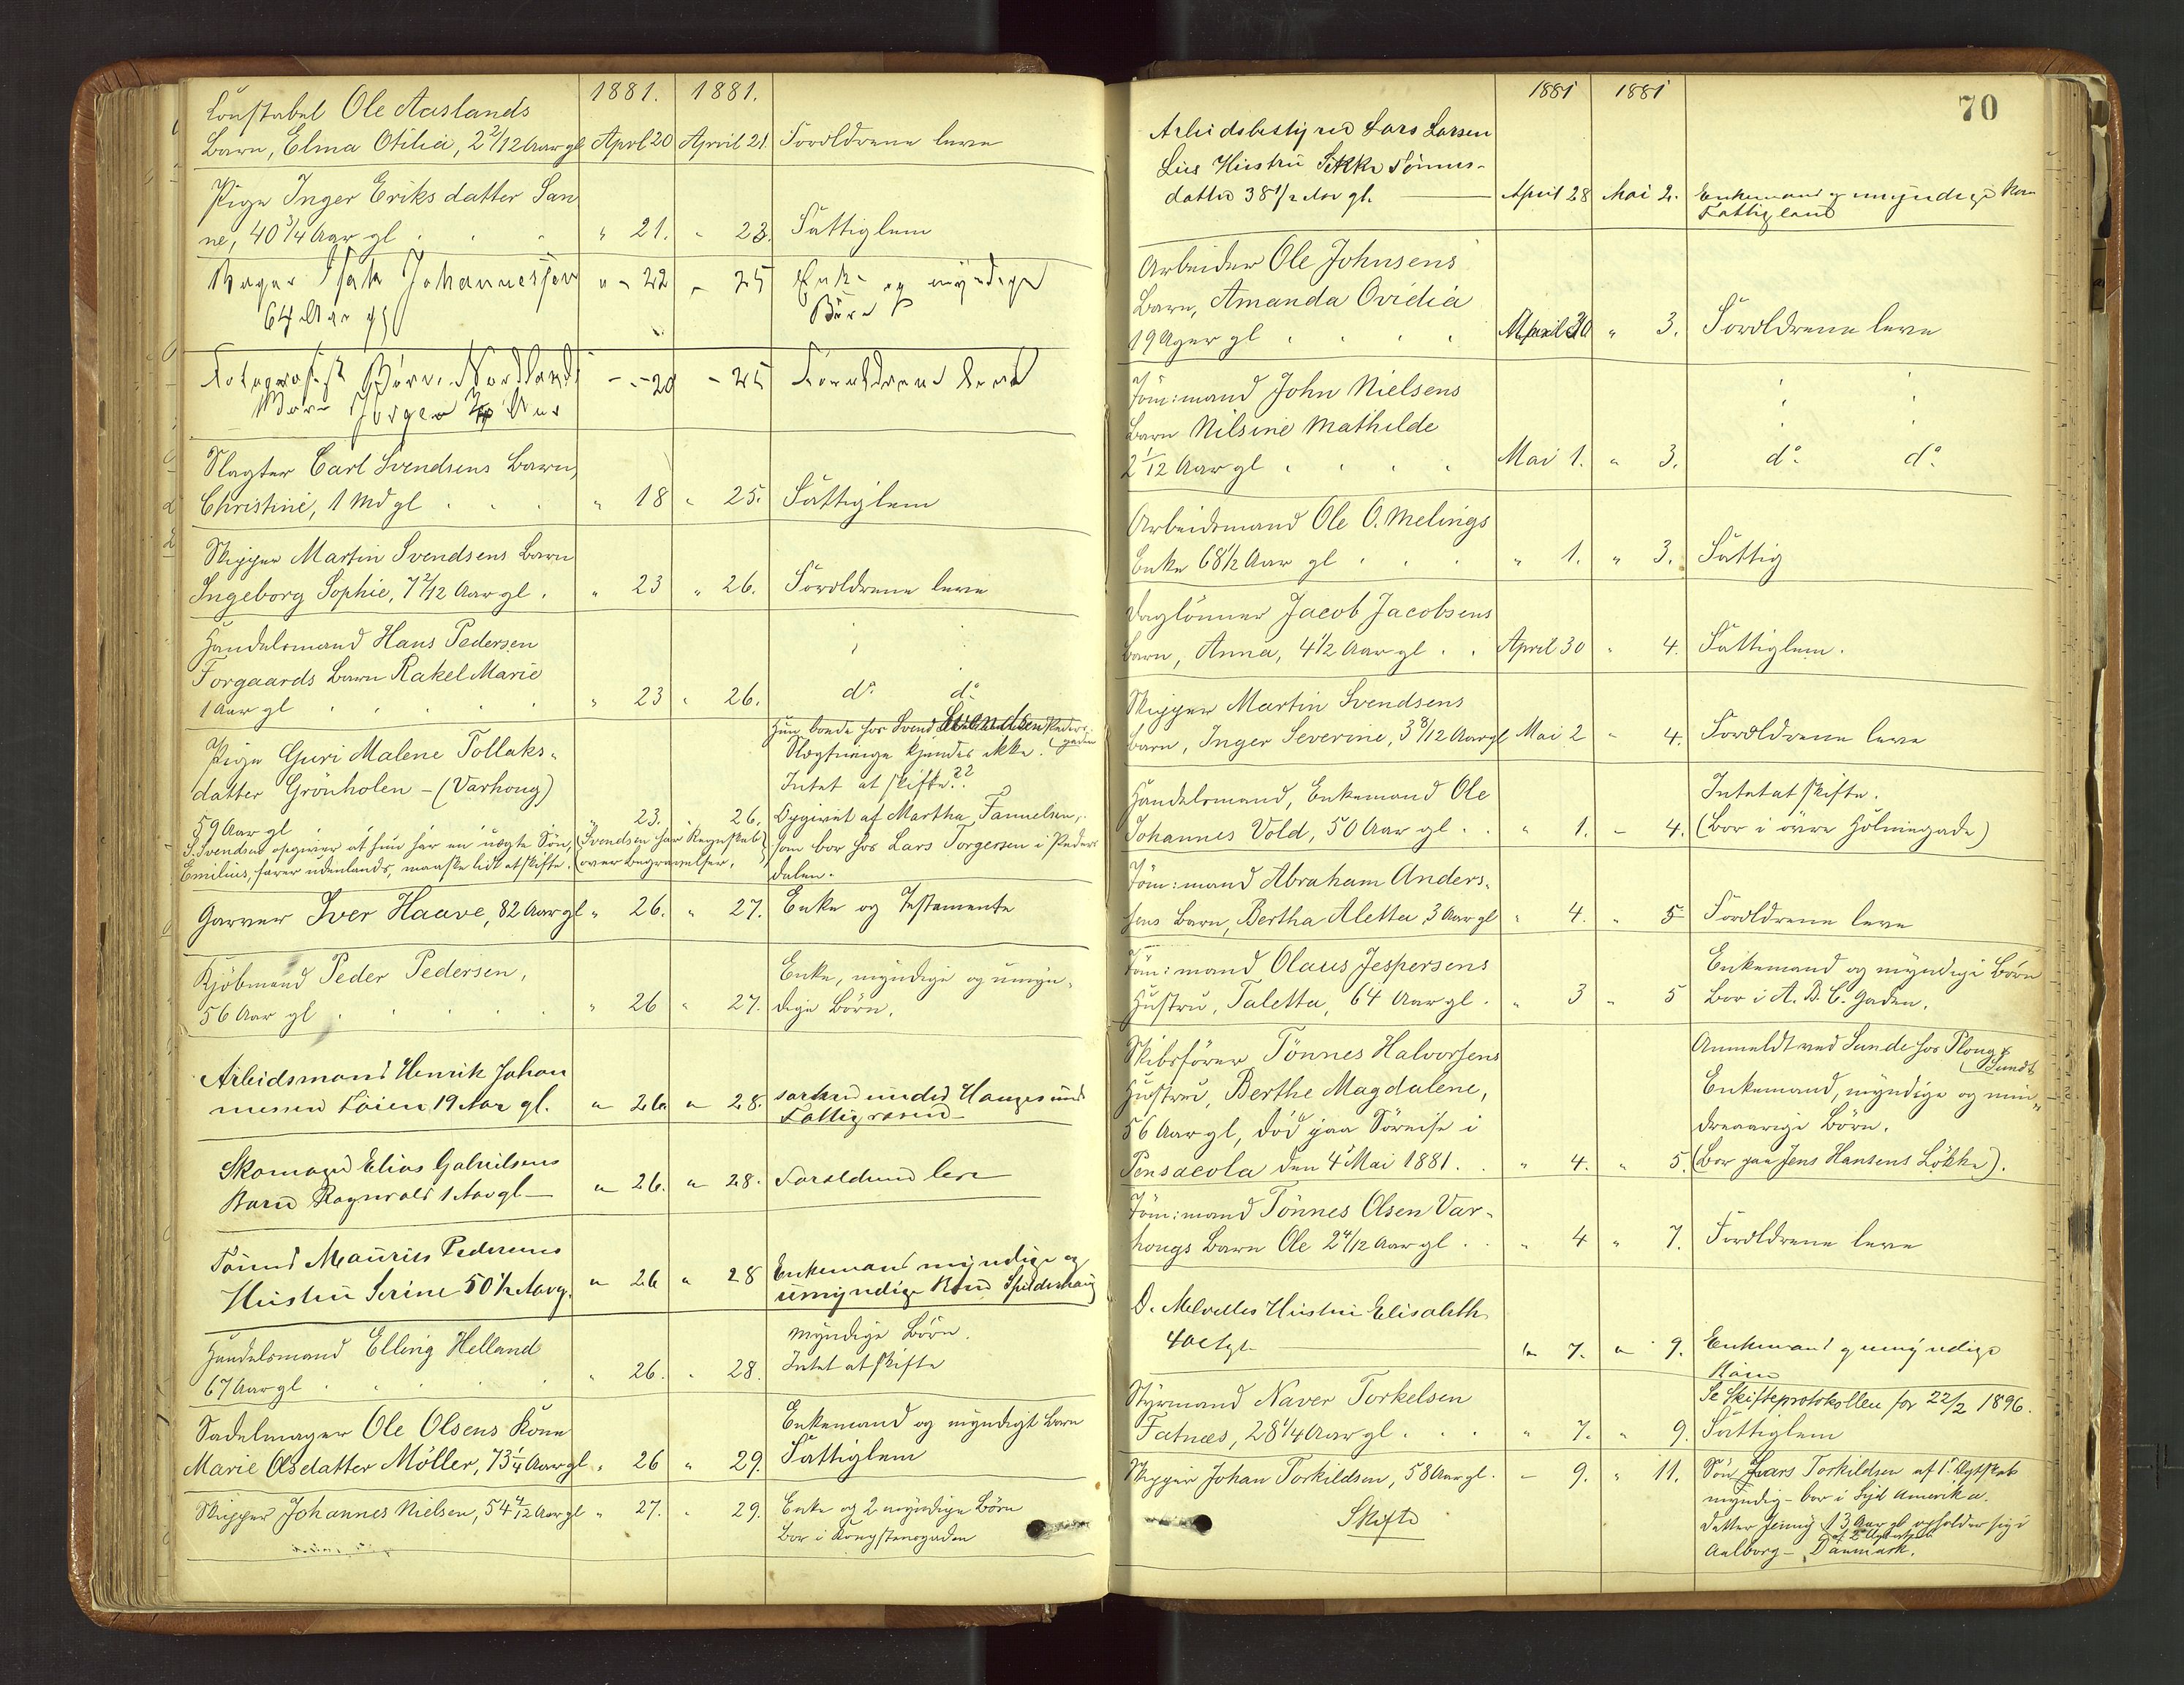 1881. 1881.
Konstabel Ole Aaslands
Barn, Elma Otilia, 2 2/12 Aar gl April 20 April 21. Forældrene leve
Pige Inger Eriksdatter San
ne, 40 3/4 Aar gl " 21. " 23. Fattiglem
Bager Isak Johannessen " 22 - 25 Enke og myndige
64 Aar gl Børn
Fotografist Børre Nordlands - 20 - 25 Forældrene leve
Barn Jørgen
Slagter Carl Svendsens Barn,
Christine, 1 Md gl " 18 " 25. Fattiglem
Skipper Martin Svendsens Barn
Ingeborg Sophie, 7 2/12 Aar gl. " 23 " 26. Forældrene leve
Handelsmand Hans Pedersen
Forgaards Barn Rakel Marie
1 Aar gl " 23 " 26. do. do.
Hun boede hos Svend Svendsen Peders-
gaden
Pige Guri Malene Tollaks- Slægtninge kjendes ikke.
datter Grönholen - (Varhoug) Intet at skifte??
59 Aar gl " 23. " 26. Opgivet af Martha Samuelsen,
S. Svendsen opgiver at hun har en uægte Søn, (Svendsen har Regnskab som bor hos Lars Torgersen i Peders
Emilius, farer udenlands, maaske lidt at skifte. (over Begravelsen. dalen.
Garver Iver Haave, 82 Aar gl " 26. " 27. Enke og Testamente
Kjöbmand Peder Pedersen, Enke, myndige og umyn-
56 Aar gl " 26 " 27. dige Börn.
Arbeidsmand Henrik Johan
nessen Loien 19 Aar gl. " 26. " 28. sorterer under Haugesunds
Fattigvæsen
Skomager Elias Gabrielsens
Barn Ragnvald 1 Aar gl - " 26. " 28. Forældrene leve
Tömmd Mauritz Pedersens
Hustru Serine 50 1/2 Aar g. " 26 " 28 Enkemand myndige og
umyndige Børn Spilderhaug
Handelsmand Elling Helland Myndige Börn.
67 Aar gl " 26. " 28. Intet at skifte
Sadelmager Ole Olsens Kone Enkemand og myndigt Barn
Marie Olsdatter Möller, 73 1/4 Aar gl " 26 " 29. Fattiglem
Skipper Johannes Nielsen, 54 4/12 Aar gl " 27. " 29. Enke og 2 myndige Börn
Bor i Kongstensgaden
70
1881 1881
Arbeidsbestyrer Lars Larsen
Lies Hustru Sikke Tönnes-
datter 38 1/2 Aar gl. April 28 Mai 2. Enkemand og umyndige Børn
Fattiglem
Arbeider Ole Johnsens
Barn, Amanda Ovidia
19 Uger gl April 30 " 3. Forældrene leve
Töm:mand John Nielsens
Barn Nilsine Mathilde
2 1/12 Aar gl Mai 1. " 3. do. do.
Arbeidsmand Ole O. Melings
Enke 68 1/2 Aar gl " 1. " 3. Fattig
Daglönner Jacob Jacobsens
Barn, Anna, 4 1/2 Aar gl April 30 " 4. Fattiglem.
Skipper Martin Svendsens
Barn, Inger Severine, 3 8/12 Aar gl Mai 2 " 4. Forældrene leve
Handelsmand, Enkemand Ole Intet at skifte.
Johannes Vold, 50 Aar gl. " 1. - 4. (Bor i övre Holmegade)
Töm:mand Abraham Anders-
sens Barn, Bertha Aletta 3 Aar gl " 4. " 5 Forældrene leve
Töm:mand Olaus Jespersens Enkemand og myndige Börn
Hustru, Taletta, 64 Aar gl. " 3 " 5 Bor i A. B. C. Gaden.
Skibsförer Tönnes Halvorsens Anmeldt ved Sunde hos Ploug &
Sundt
Hustru, Berthe Magdalene, Enkemand, myndige og min-
56 Aar gl, död paa Söreise i dreaarige Börn.
Pensacola den 4' Mai 1881. " 4. " 5. (Bor paa Jens Hansens Lökke).
Töm:mand Tönnes Olsen Var-
hougs Barn Ole 2 4/12 Aar gl. " 4 " 7. Forældrene leve
D. Melvelles Hustru Elisabeth
40 A gl. " 7. " 9. Enkemand og umyndige
Børn
Styrmand Naver Torkelsen Se Skifteprotokollen for 22/2 1896.
Fatnæs, 28 1/4 Aar gl. " 7. " 9. Fattiglem
Skipper Johan Torkildsen, 58 Aar gl. - 9. " 11. Sön Lars Torkildsen af 1' Ægteskab
Skifte myndig - bor i Syd Amerika.
Datter Jenny 13 Aar gl opholder sig i
af 2' Ægteskab
Aalborg - Danmark.